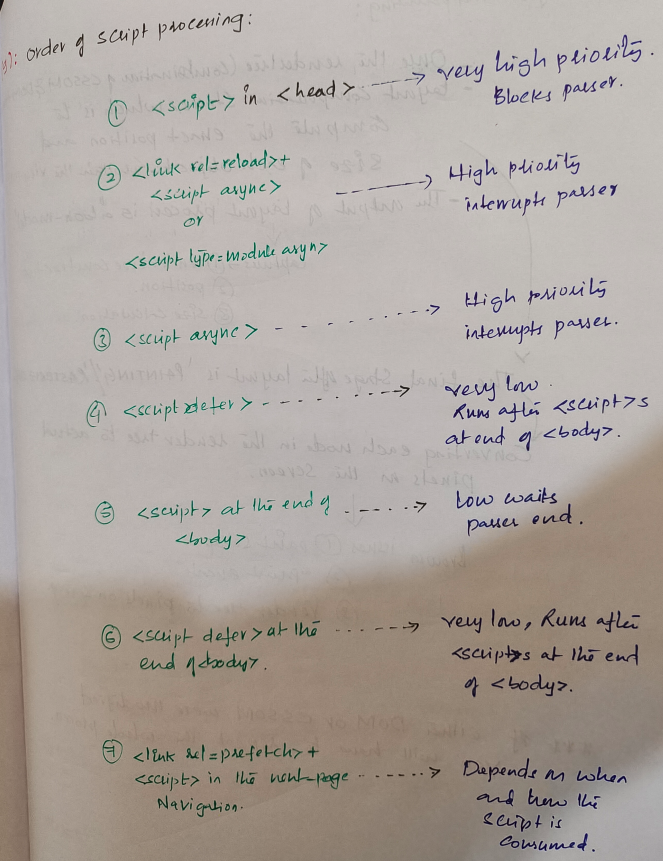 order of script processing:
① <script> in <head> ----> very high priority.
Blocks parser.
② <link rel=reload>+
<script async>
or
<script type=module asyn>
----> High priority
interrupts parser
③ <script async> - - - - - -> High priority
interrupts parser.
④ <script defer> - - - - - -> very low.
Runs after <script>s
at end of <body>.
⑤ <script> at the end of
<body>
- - - -> Low waits
parser end.
⑥ <script defer> at the
end of <body>.
- - - - -> very low, Runs after
<script>s at the end
of <body>.
⑦ <link rel=prefetch> +
<script> in the next-page
Navigation.
- - - - -> Depends on when
and how the
script is
consumed.